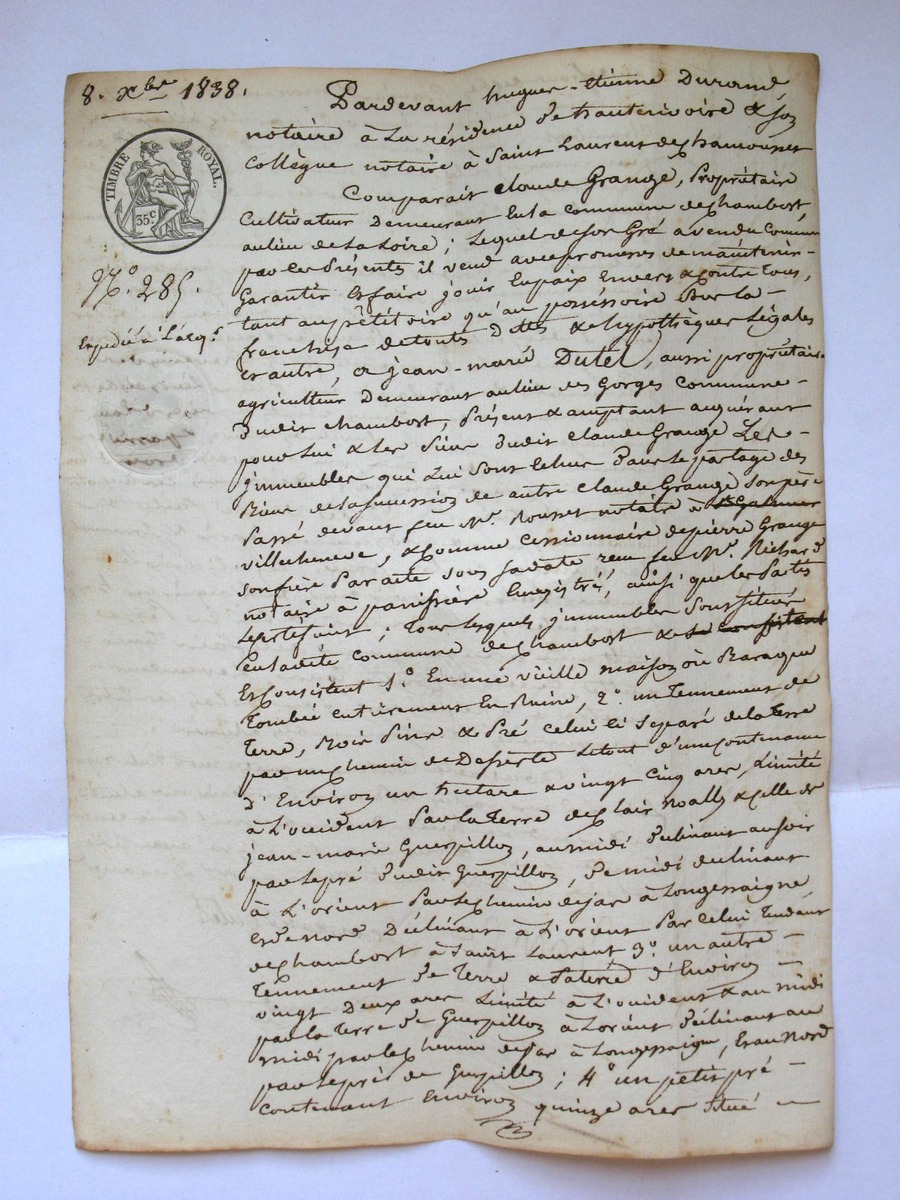 8. Xbre 1838.
TIMBRE ROYAL.
35c
No. 285.
Expédié à l'acqr
Pardevant hugues-Etienne Durand,
notaire à La résidence de hauterivoire & son
Collègue notaire à Saint Laurent de Chamousset
Comparait Claude Grange, Propriétaire
Cultivateur Demeurant En la commune de Chambost,
au lieu de La Loire ; Lequel de son Gré a vendu Comme
par les Présentes il vend avec promesses de maintenir-
Garantir & faire jouir En paix Envers & contre tous,
tant au pétitoire qu'au posséssoire sous la -
franchise de touts dettes & hypothèques Légales
et autre, a jean-marie Dutel, aussi propriétaire
agriculteur Demeurant au lieu des Gorges Commune-
Dudit Chambost, Présent & acceptant acquérant
pour Lui & les Siens Dudit Claude Grange Les -
jmmeubles qui Lui sont échus Dans Le partage des
Biens de La succession de autre Claude Grange son père
Passé devant feu Me. Rousset notaire à St Galmier
villecheneve, & Comme Cessionnaire de pierre Grange
son frère Par acte sous sa date reçu feu Me. Richard
notaire à panissière Enregistré, ainsi que les Parties
Le ; Tous Lesquels jmmeubles Sont Situés
En ladite Commune de Chambost & se consistent
Et Consistent 1o. En une vieille maison où Baraque
Tombée entièrement En Ruine, 2o. un Tennement de
Terre, Bois Pins & Pré celui ci séparé de la Terre
par un chemin de Desserte Le tout d'une contenance
d'Environ un hectare & vingt Cinq ares, Limité
à L'occident Par la Terre de Clair noally & celle de
jean-marie Guerpillon, au midi déclinant au soir
par le pré dudit Guerpillon, De midi déclinant
à L'orient Par Le chemin de jar à Longessaigne,
& de nord Déclinant à L'orient Par Celui Tendant
de Chambost à Saint Laurent 3o. un autre -
Tennement de Terre & Paterie d'Environ -
vingt Deux ares Limité à L'occident & au midi
par la Terre de Guerpillon à Lorient déclinant au
midi par le Chemin de jar à Longessaigne, Et au Nord
par le pré de Guerpillon ; 4o un petit pré -
Contenant Environ quinze ares Situé -